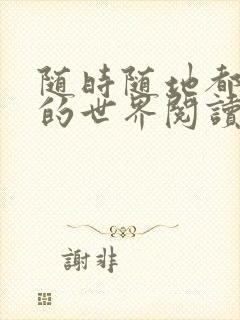 随時随地都
的世界閱讀
謝非